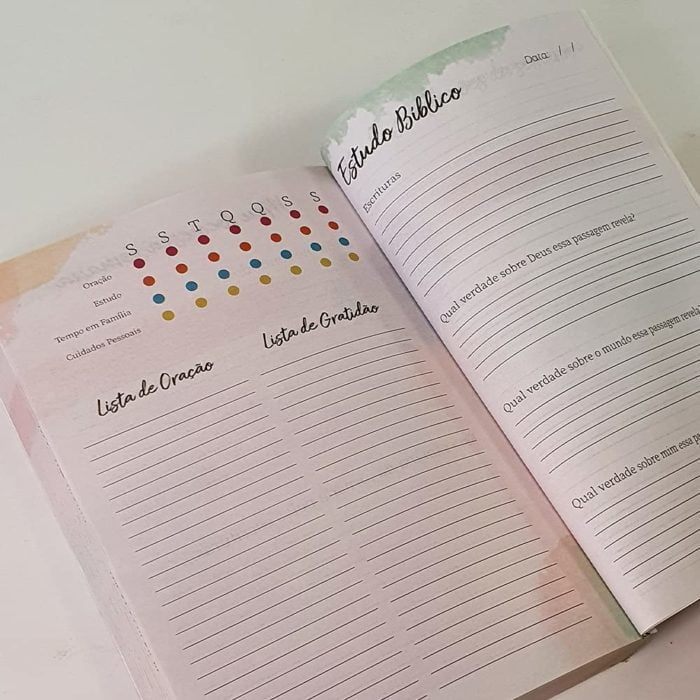 S S T Q Q S S
Oração
Estudo
Tempo em Família
Cuidados Pessoais
Lista de Oração
Lista de Gratidão
Data: / /
Estudo Bíblico
Escrituras
Qual verdade sobre Deus essa passagem revela?
Qual verdade sobre o mundo essa passagem revela
Qual verdade sobre mim essa